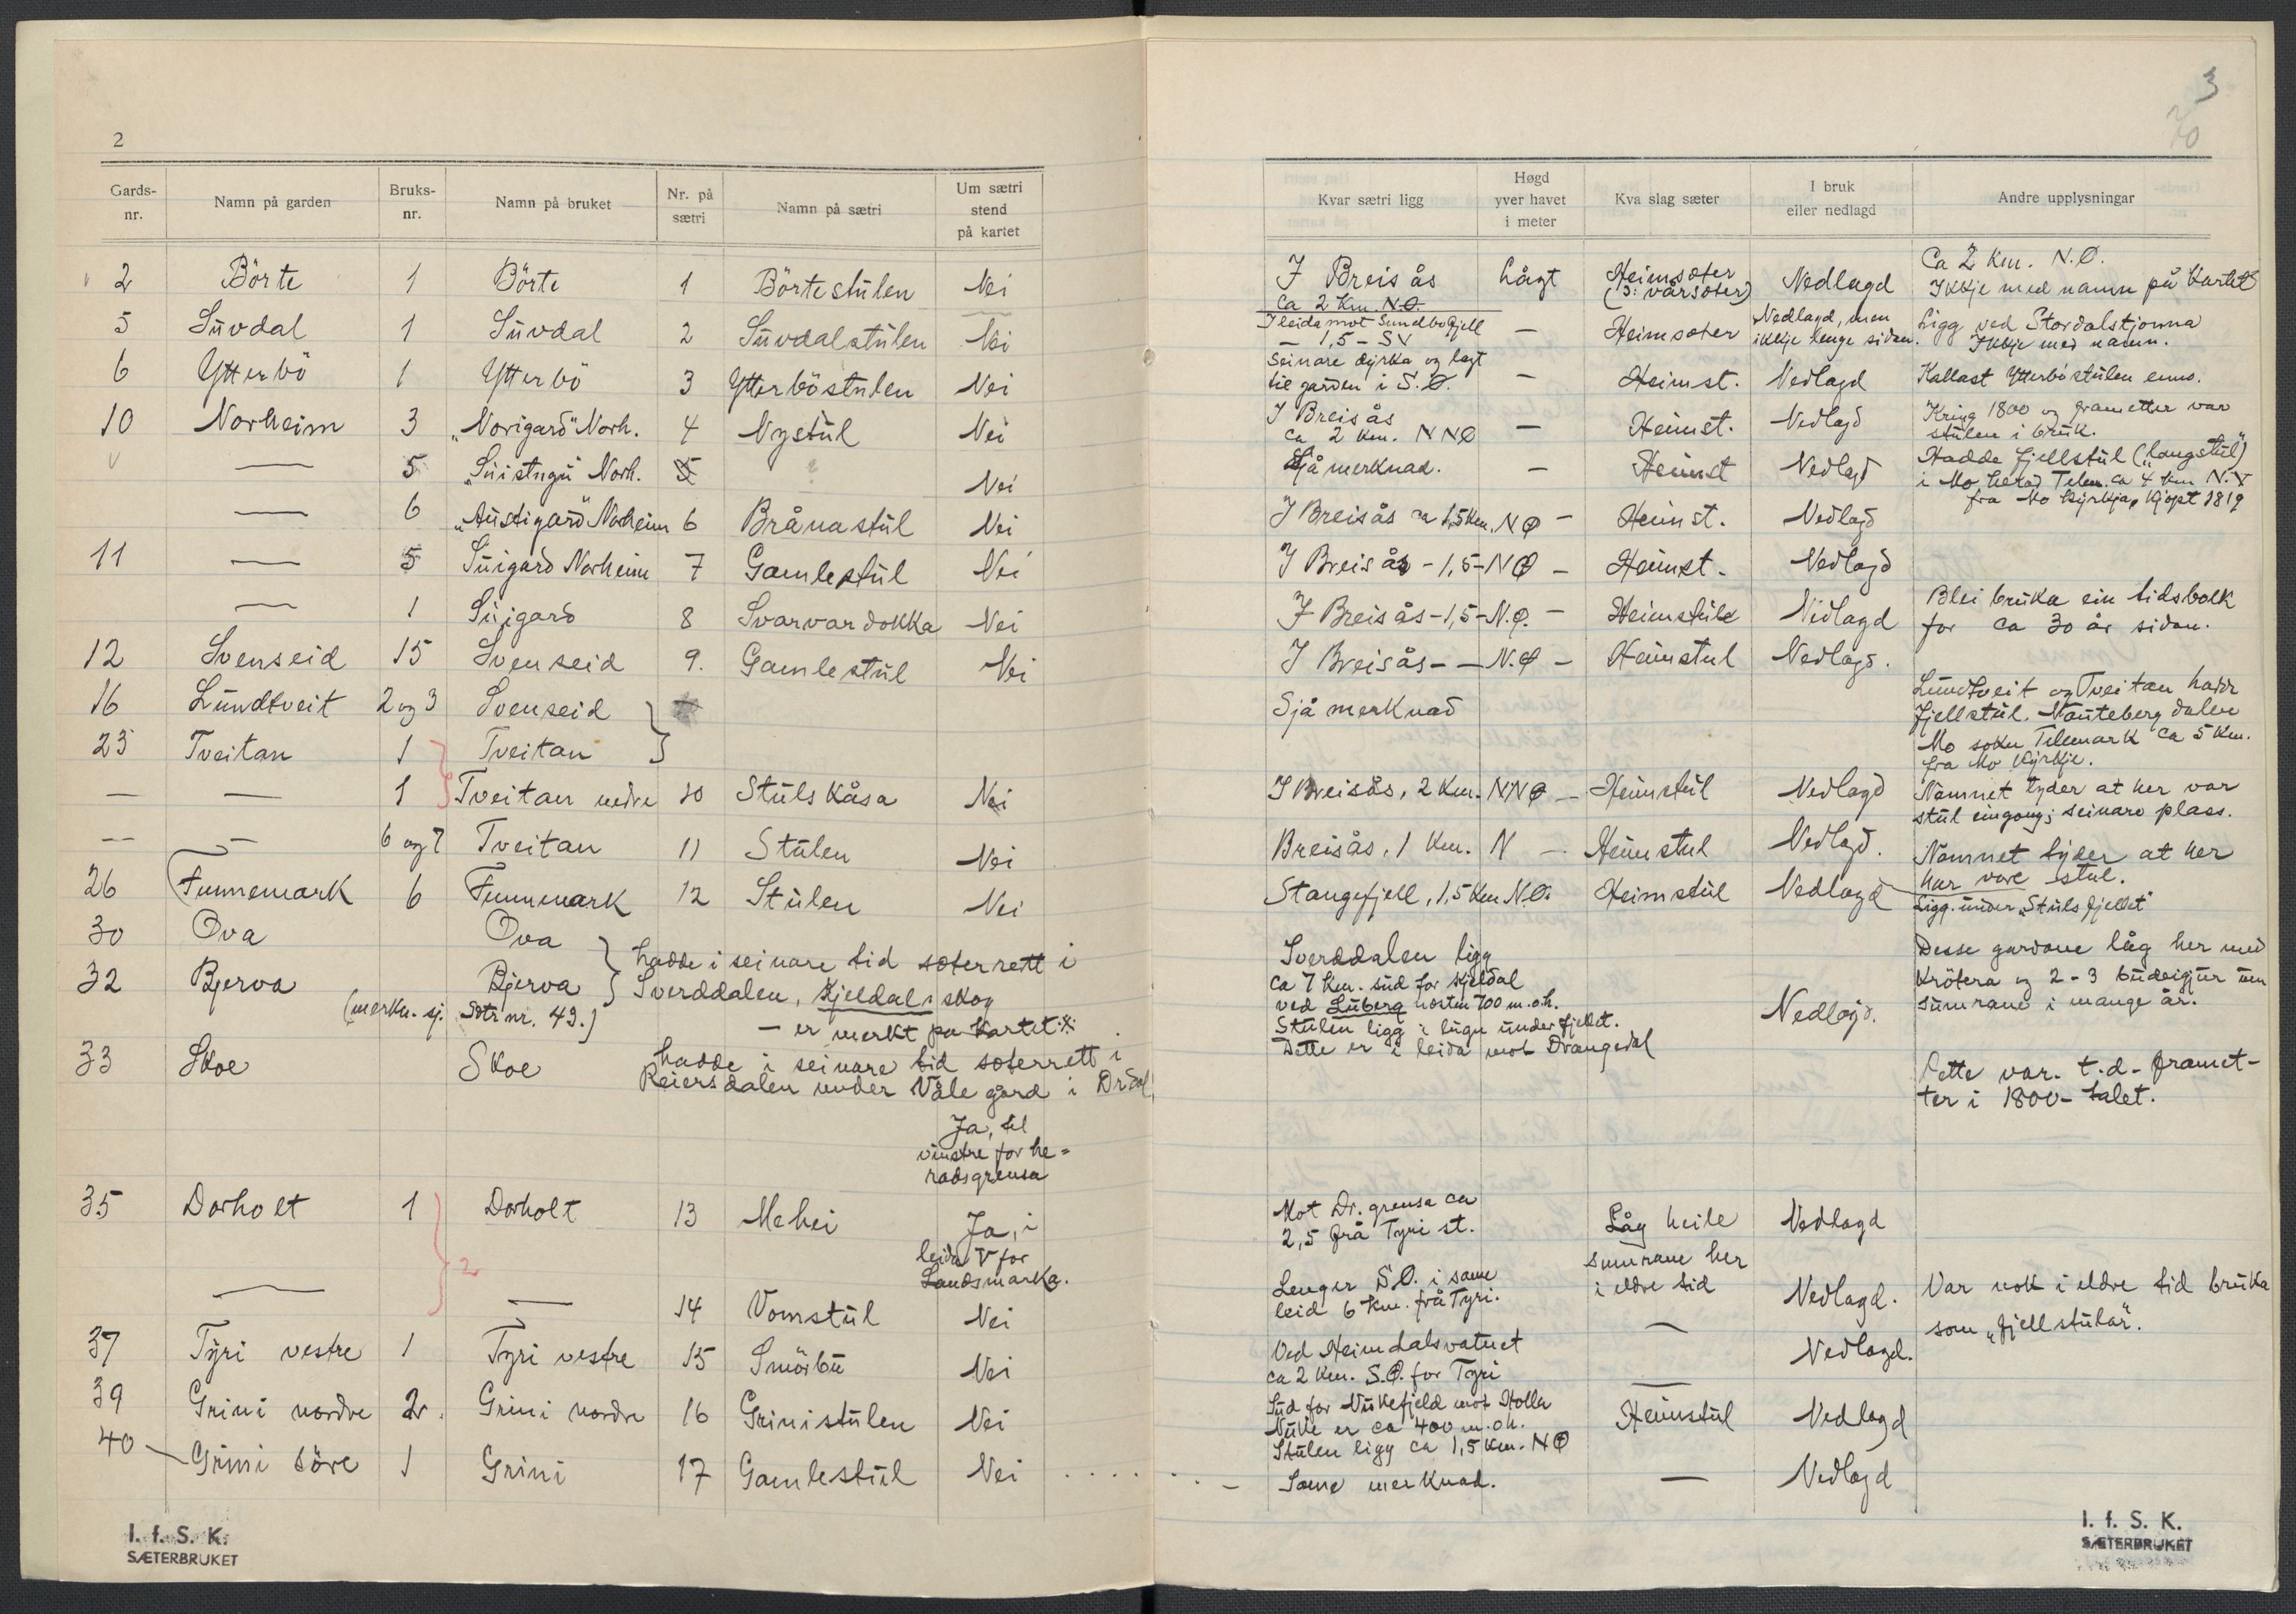 2
Gards-nr. Namn på garden Bruks-nr. Namn på bruket Nr. på sætri Namn på sætri Um sætri stend på kartet
2 Börte 1 Börte 1 Börtestulen Nei
5 Suvdal 1 Suvdal 2 Suvdalstulen Nei
6 Ytterbö 1 Ytterbö 3 Ytterböstulen Nei
10 Norheim 3 „Norigard" Norh. 4 Nystul Nei
— 5 „Suistugu" Norh. 5 ? Nei
— 6 „Austigard" Norheim 6 Brånastul Nei
11 — 5 Suigard Norheim 7 Gamlestul Nei
— 1 Suigard 8 Svarvardokka Nei
12 Svenseid 15 Svenseid 9. Gamlestul Nei
16 Lundtveit 2 og 3 Svenseid
23 Tveitan 1 Tveitan
— — 1 Tveitan nedre 10 Stulskåsa Nei
— — 6 og 7 Tveitan 11 Stulen Nei
26 Funnemark 6 Funnemark 12 Stulen Nei
30 Ova Ova
hadde i seinare tid sæterrett i
32 Bjerva Bjerva
Sverddalen, Kjeldal, skog
(merkn. sj. Sætr nr. 49.)
— er merkt på kartet
33 Skoe Skoe
hadde i seinare tid sæterrett i
Reiersdalen under Våle gard i Dr.dal
Ja, til
vinstre for he=
radsgrensa
35 Dorholt 1 Dorholt 13 Mehei Ja, i
leida V for
Landsmarka.
2
— — 14 Vomstul Nei
37 Tyri vestre 1 Tyri vestre 15 Smörbu Nei
39 Grini nordre 2 Grini nordre 16 Grinistulen Nei
40 Grini söre 1 Grini 17 Gamlestul Nei
I. f. S. K.
SÆTERBRUKET
3
Kvar sætri ligg Høgd yver havet i meter Kva slag sæter I bruk eiler nedlagd Andre upplysningar
I Breisås lågt Heimsæter Nedlagd Ca 2 Km. N.Ø.
Ca 2 Km. N.Ø. (ɔ: vårsæter) Ikkje med namn på Kartet
I leida mot Sundbøfjell — Heimsæter Nedlagd, men Ligg ved Stordalstjonna
— 1,5 – SV ikkje lenge sidan. Ikkje med namn.
Seinare dyrka og lagt
til garden i S.Ø. — Heimst. Nedlagd Kallast Ytterböstulen enno.
I Breisås
ca 2 Km. NNØ — Heimst. Nedlagd Kring 1800 og frametter var
stulen i bruk.
Sjå merknad. — Heimst Nedlagd Hadde fjellstul („Langstul")
i Mo herad Telem. ca 4 Km N.V
fra Mo Kyrkja, Kjøpt 1819
I Breisås ca 1,5 Km. NØ — Heimst. Nedlagd
I Breisås – 1,5 – NØ — Heimst. Nedlagd
I Breisås – 1,5 – N.Ø. — Heimstul Nedlagd Blei bruka ein tidsbolk
for ca 30 år sidan.
I Breisås – — N.Ø — Heimstul Nedlagd.
Sjå merknad Lundtveit og Tveitan hadde
fjellstul. Nautebergdalen
Mo sokn Telemark ca 5 Km.
fra Mo Kyrkje.
I Breisås, 2 Km. NNØ — Heimstul Nedlagd Namnet tyder at her var
stul eingong; seinare plass.
Breisås, 1 Km. N — Heimstul Nedlagd. Namnet tyder at her
har vore stul.
Stangefjell, 1,5 Km N.Ø. Heimstul Nedlagd Ligg under „Stulsfjellet"
Sverddalen ligg Desse gardane låg her med
ca 7 Km. sud for Kjeldal Krötera og 2–3 budeigjur um
ved Luberg næsten 700 m.o.h. Nedlagd. sumrane i mange år.
Stulen ligg i lugn under fjellet.
Dette er i leida mot Drangedal
Dette var t.d. framet-
ter i 1800-talet.
Mot Dr. grensa ca
2,5 frå Tyri st. Låg heile Nedlagd
sumrane her
Lenger S.Ø. i same i eldre tid
leid 6 Km. frå Tyri. Nedlagd. Var nok i eldre tid bruka
som „fjellstular".
Ved Heimdalsvatnet — Nedlagd.
ca 2 Km. S.Ø. for Tyri
Sud for Nukefjeld mot Holla
Nuke er ca 400 m.o.h. Heimstul Nedlagd
Stulen ligg ca 1,5 Km. NØ
Same merknad. — Nedlagd
I. f. S. K.
SÆTERBRUKET